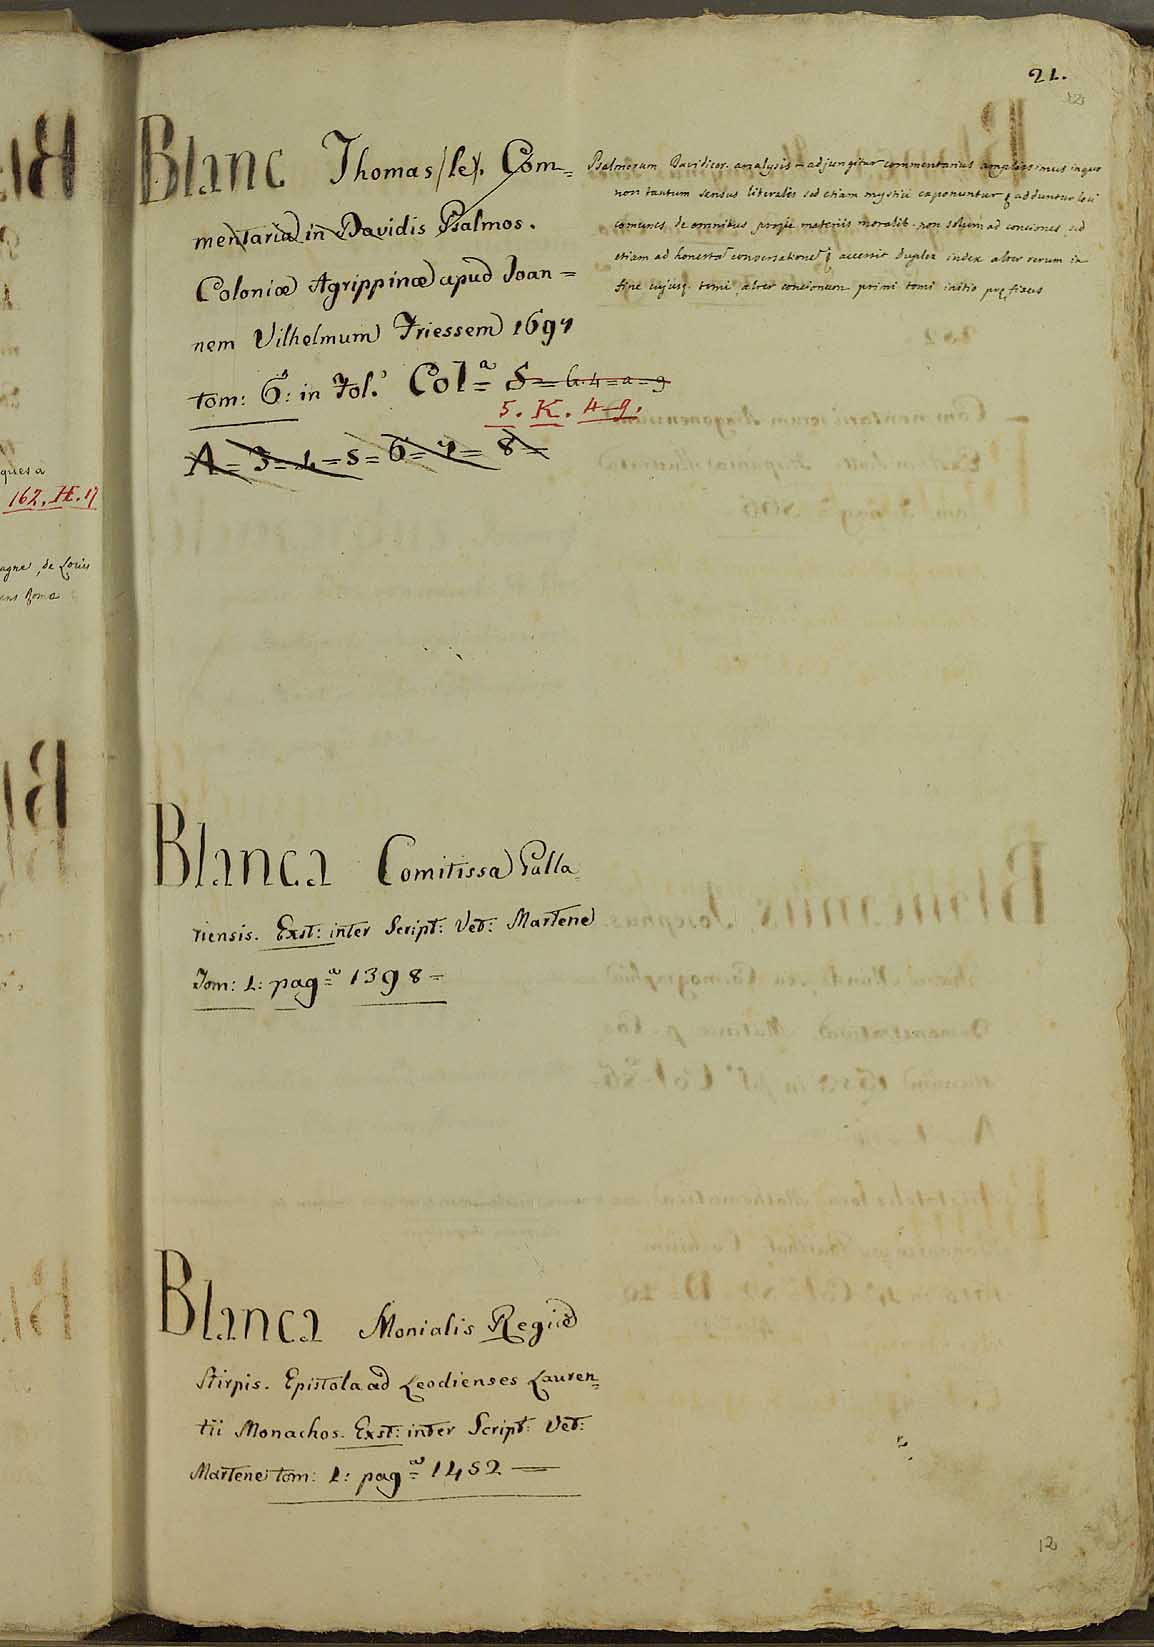 21.
12
Blanc Thomas (le). Com=
mentaria in Davidis Psalmos.
Coloniæ Agrippinæ apud Joan=
nem Vilhelmum Friessem 1697
tom: 6: in Fol.° Col=ª 5= G.4=a=9
5. K. 4-9.
A=3=4=5=6=7=8=
Psalmorum Davidicor. analysis - adjungitur commentarius amplissimus in quo
non tantum sensus literales sed etiam mystici exponuntur & adduntur loci
comunes de omnibus materiis moralib. non solum ad conciones, sed
etiam ad conversatione accessit duplex index alter rerum in
fine cujusq. tomi, alter concionum primi tomi initio præfixus
ques a
162. H. 17
agne, de Louis
ens Roma
Blanca Comitissa Palla
riensis. Exst: inter Script: Vet: Martene
Tom: 1: pag=ª 1398=
Blanca Monialis Regiæ
Stirpis. Epistola ad Leodienses Lauren=
tii Monachos. Exst: inter Script: Vet:
Martene tom: 1: pag=ª 1452
12